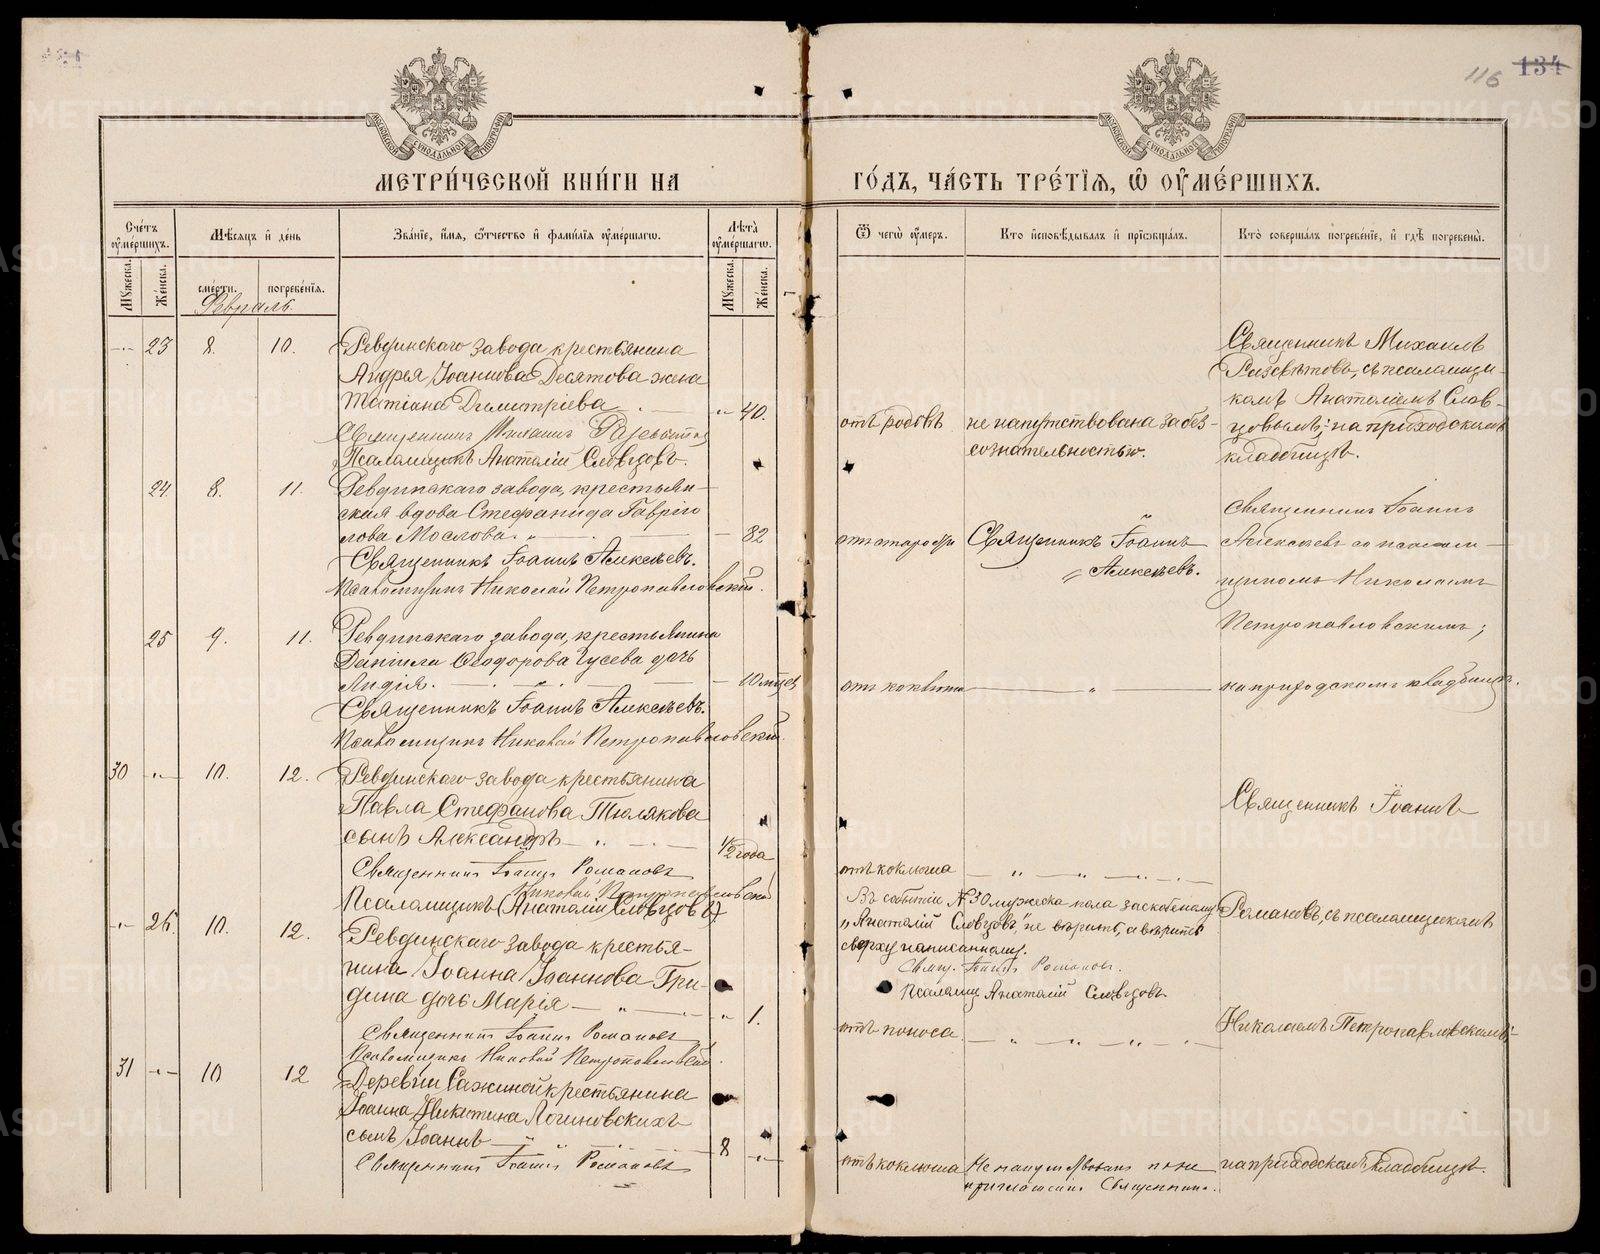 116 134
МЕТРИ́ЧЕСКОЙ КНИ́ГИ НА ГО́ДЪ, ЧА́СТЬ ТРЕ́ТІѦ, Ѿ ОУ҆МЕ́РШИХЪ.
Сче́тъ оу҆ме́ршихъ.
Мѣ́сяцъ и҆ де́нь
Зва́нїе, и҆́мѧ, ѻ҆́тчество и҆ фами́лїѧ оу҆ме́ршагѡ.
Лѣ́та оу҆ме́ршагѡ.
Ѿ чегѡ̀ оу҆́меръ.
Кто̀ и҆сповѣ́дывалъ и҆ прїѡбща́лъ.
Кто̀ соверша́лъ погребе́нїе, и҆ гдѣ̀ погребены̀.
Мꙋ́жеска.
Же́нска.
сме́рти.
погребе́нїѧ.
Мꙋ́жеска.
Же́нска.
Февраль.
23 8. 10. Ревдинскаго завода крестьянина
Андрея Іоаннова Десятова жена
Татіана Димитріева 40.
Священникъ Михаилъ
Псаломщикъ Анатолій Словцовъ.
отъ родовъ
не напутствована за без-
сознательностью.
Священникъ Михаилъ
Разсвѣтовъ, съ псаломщи-
комъ Анатоліемъ Слов-
цовымъ; на приходскомъ
кладбищѣ.
24. 8. 11. Ревдинскаго завода, крестьян-
ская вдова Стефанида Гаврiи
лова Мослова. 82
Священникъ Іоаннъ Алексѣевъ.
Псаломщикъ Николай Петропавловскій.
отъ старости
Священникъ Іоаннъ
Алексѣевъ.
Священникъ Іоаннъ
Алексѣевъ со псалом-
щикомъ Николаемъ
Петропавловскимъ;
25 9. 11. Ревдинскаго завода, крестьянина
Даніила Ѳеодорова Гусева дочь
Лидія. 10 мцев
Священникъ Іоаннъ Алексѣевъ.
Псаломщикъ Николай Петропавловскій.
отъ коклюша
на приходскомъ кладбищѣ.
30 10. 12. Ревдинскаго завода крестьянина
Павла Стефанова Тюлякова
сынъ Александръ 1/2 года
Священникъ Іоаннъ Романовъ
Николай Петропавловскій
Псаломщикъ (Анатолій Словцовъ)
отъ коклюша
Въ событіи № 30 мужеска пола заскобленному
"Анатолій Словцовъ" не вѣрить, а вѣрить
сверху написанному.
Свящ. Іоаннъ Романовъ.
Псаломщ Анатолій Словцовъ
Священникъ Іоаннъ
Романовъ, съ псаломщикомъ
26. 10. 12. Ревдинскаго завода крестья-
нина Іоанна Іоаннова Гри-
дина дочь Марія 1.
Священникъ Іоаннъ Романовъ
Псаломщикъ Николай Петропавловскій.
отъ поноса
Николаемъ Петропавловскимъ;
31 10 12 Деревни Сажиной крестьянина
Іоанна Никитина Логиновскихъ
сынъ Іоаннъ 8
Священникъ Іоаннъ Романовъ
отъ коклюша
Не напутствованъ по не
приглашенію Священника.
на приходскомъ кладбищѣ.
METRIKI.GASO-URAL.RU